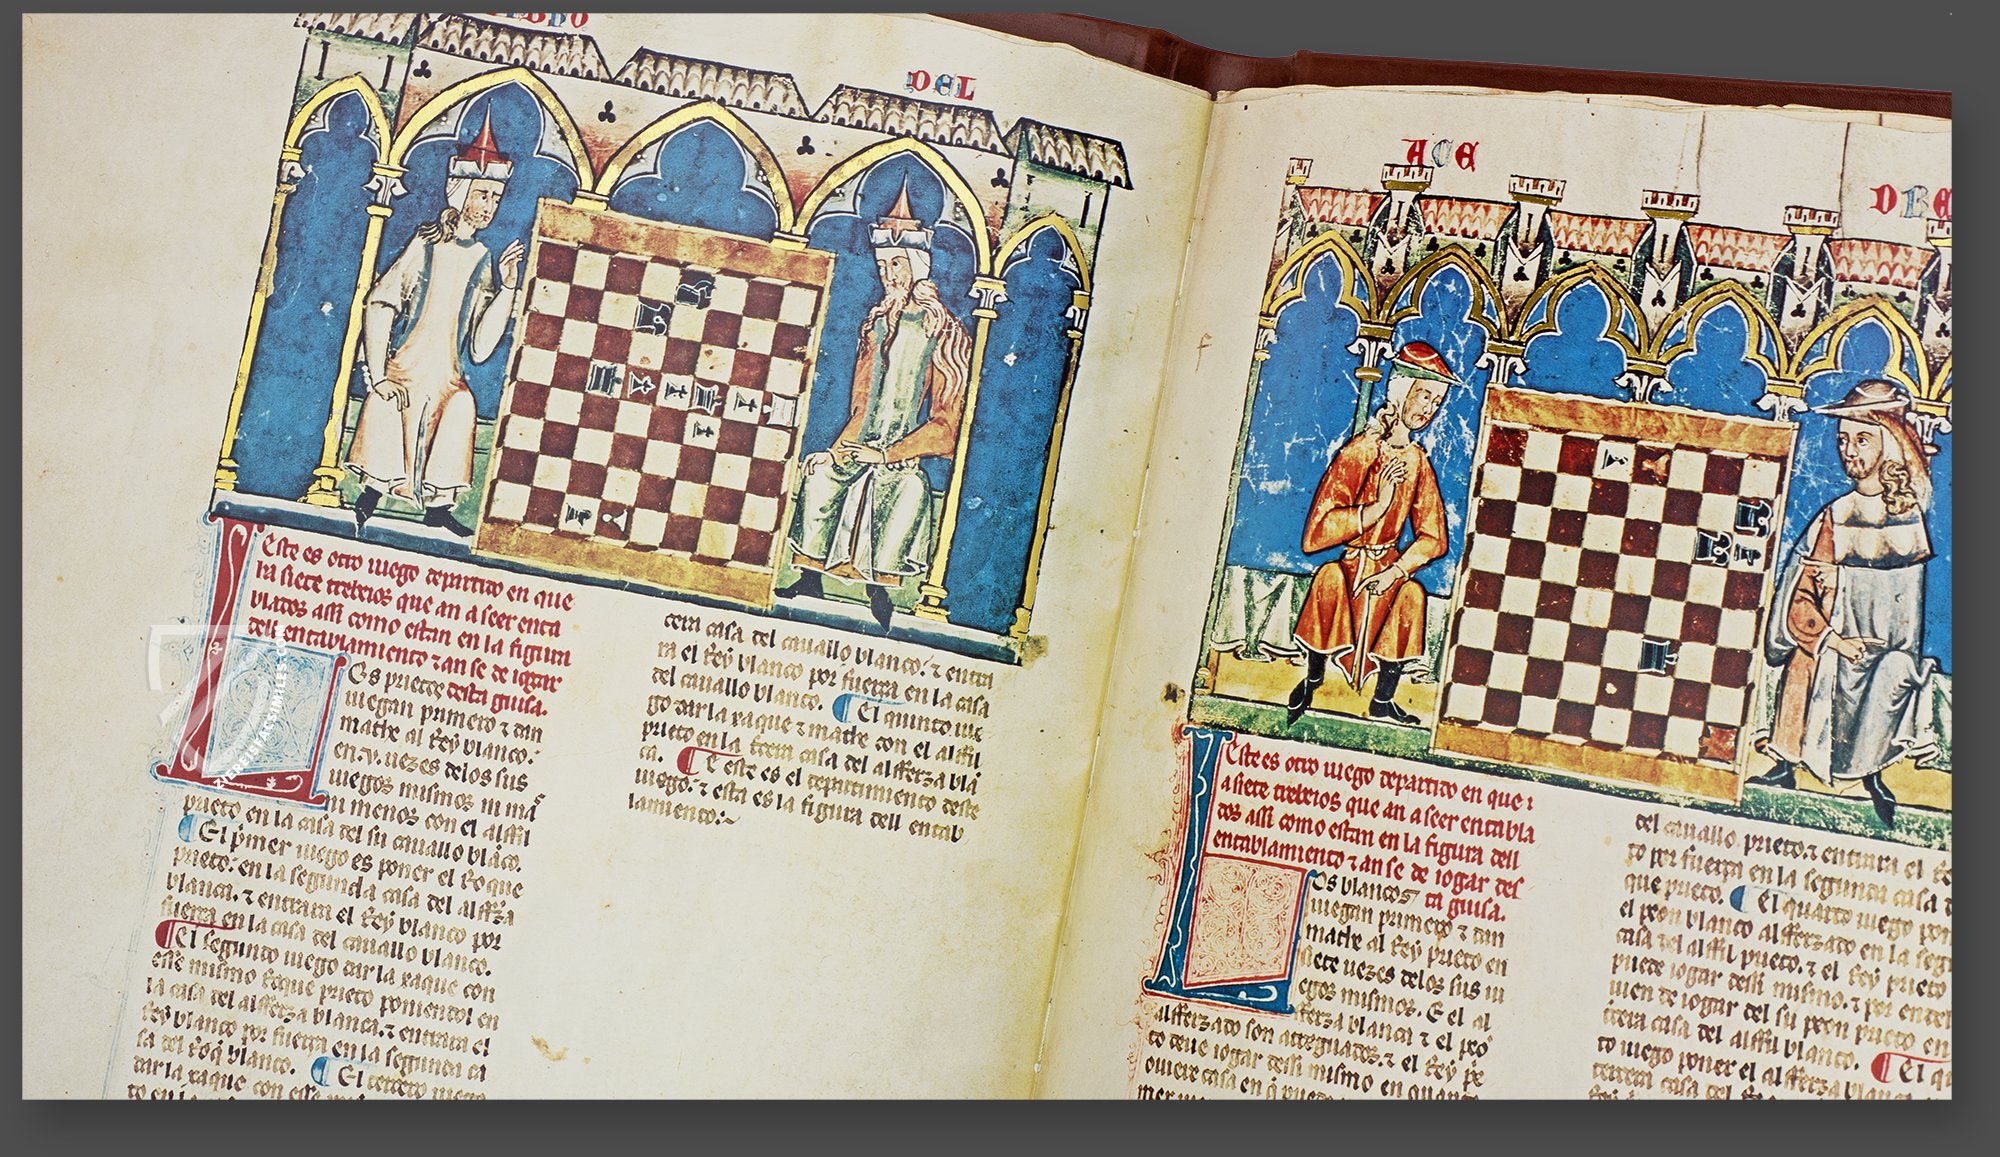 DEL
Este es otro iuego departido en que
ha siete trebeios que an a seer enta
blados assi como estan en la figura
dell entablamiento ⁊ an se de iogar
desta guisa.
Los prietos
iuegan primero ⁊ dan
mathe al Rey blanco.
en .v. uezes delos sus
iuegos mismos ni mas
ni menos con el alffil
prieto en la casa del su cauallo blāco.
El p̀mer iuego es poner el Roque
prieto en la segunda casa del alfferza
blanca. ⁊ entrara el Rey blanco por
fuerça en la casa del cauallo blanco.
El segundo iuego dar la xaque con
esse mismo Roque prieto poniendol en
la casa del alfferza blanca. ⁊ entrara el
Rey blanco por fuerça en la segunda ca
sa del Roq̄ blanco. El tercero iuego
dar la xaque con esse
cera casa del cauallo blanco. ⁊ entra
ra el Rey blanco por fuerça en la casa
del cauallo blanco. El quinto iue
go dar la xaque ⁊ mathe con el alffil
prieto en la tercera casa del alfferza blan
ca. E este es el departimiento deste
iuego. ⁊ esta es la figura dell entab
lamiento:~
ACE
DRE
Este es otro iuego departido en que a
a siete trebeios que an a seer entabla
dos assi como estan en la figura dell
entablamiento ⁊ an se de iogar des
ta guisa.
Los blancos
iuegan primero ⁊ dan
mathe al Rey prieto en
siete uezes delos sus iu
egos mismos. E el al
fferza blanca ⁊ el peon
alfferzado son atreguados. ⁊ el Rey prie
to deue iogar dessi mismo en quanto
ouiere casa en q̄ pueda
del cauallo prieto. ⁊ entrara el Re
to por fuerça en la segunda casa d
que prieto. El quarto iuego pon
el peon blanco alfferzado en la segu
casa del alffil prieto. ⁊ el Rey prieto
puede iogar dessi mismo. ⁊ por en
uien de iogar del su peon prieto en
tercera casa del alffil blanco. El q
to iuego poner el alfferza blanca
tercera casa del
ZIEREISFACSIMILES.COM